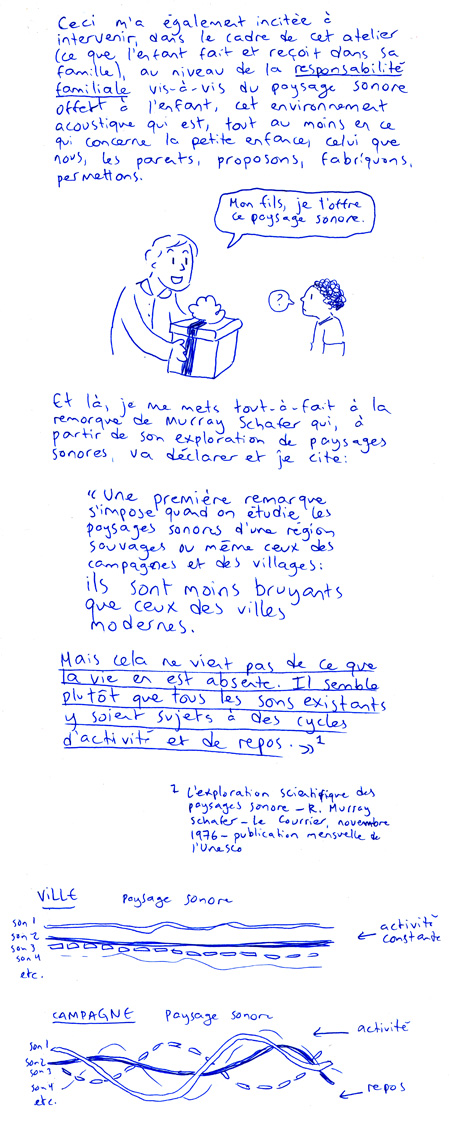 Ceci m'a également incitée à
intervenir, dans le cadre de cet atelier
(ce que l'enfant fait et reçoit dans sa
famille), au niveau de la responsabilité
familiale vis-à-vis du paysage sonore
offert à l'enfant, cet environnement
acoustique qui est, tout au moins en ce
qui concerne la petite enfance, celui que
nous, les parents, proposons, fabriquons,
permettons.
Mon fils, je t'offre
ce paysage sonore.
?
Et là, je me mets tout-à-fait à la
remorque de Murray Schafer qui, à
partir de son exploration de paysages
sonores, va déclarer et je cite:
"Une première remarque
s'impose quand on étudie les
paysages sonores d'une région
sauvages ou même ceux des
campagnes et des villages:
ils sont moins bruyants
que ceux des villes
modernes.
Mais cela ne vient pas de ce que
la vie en est absente. Il semble
plutôt que tous les sons existants
y soient sujets à des cycles
d'activité et de repos.»1
1 L'exploration scientifique des
paysages sonore - R. Murray
Schafer - le Courrier, novembre
1976 - publication mensuelle de
l'Unesco
ViLLE paysage sonore
son 1
son 2
son 3
son 4
etc.
activité
constante
CAMPAGNE paysage sonore
son 1
son 2
son 3
son 4
etc.
activité
repos